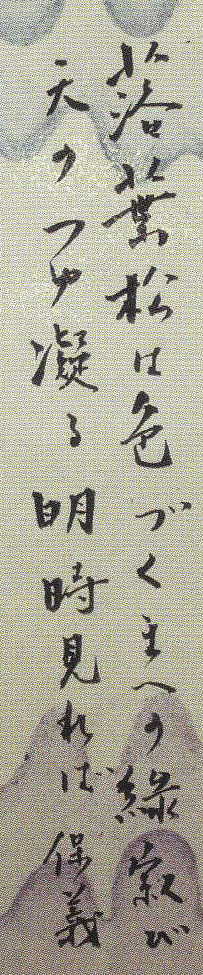 落葉松は色づくまへの緑寂び
天のつゆ凝る明時見れば 保義